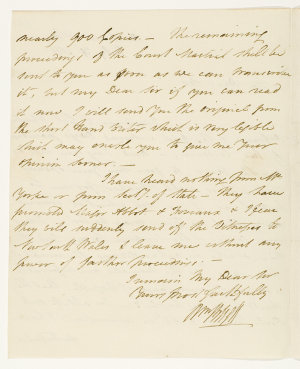 nearly 900 Copies – The remaining
proceedings of the Court Martial shall be
sent to you as soon as we can transcribe
it, but my Dear Sir if you can read
it now I will send you the original from
the short Hand Writer which is very legible
which may enable you to give me your
opinion sooner. –
I have heard nothing from Mr
Yorke or from Secty of State – they have
promoted Major Abbot & & I fear
they will suddenly send off the Witnesses to
New South Wales & leave me without any
power of further proceedings. –
I remain My Dear Sir
Yours Most faithfully
Wm Bligh